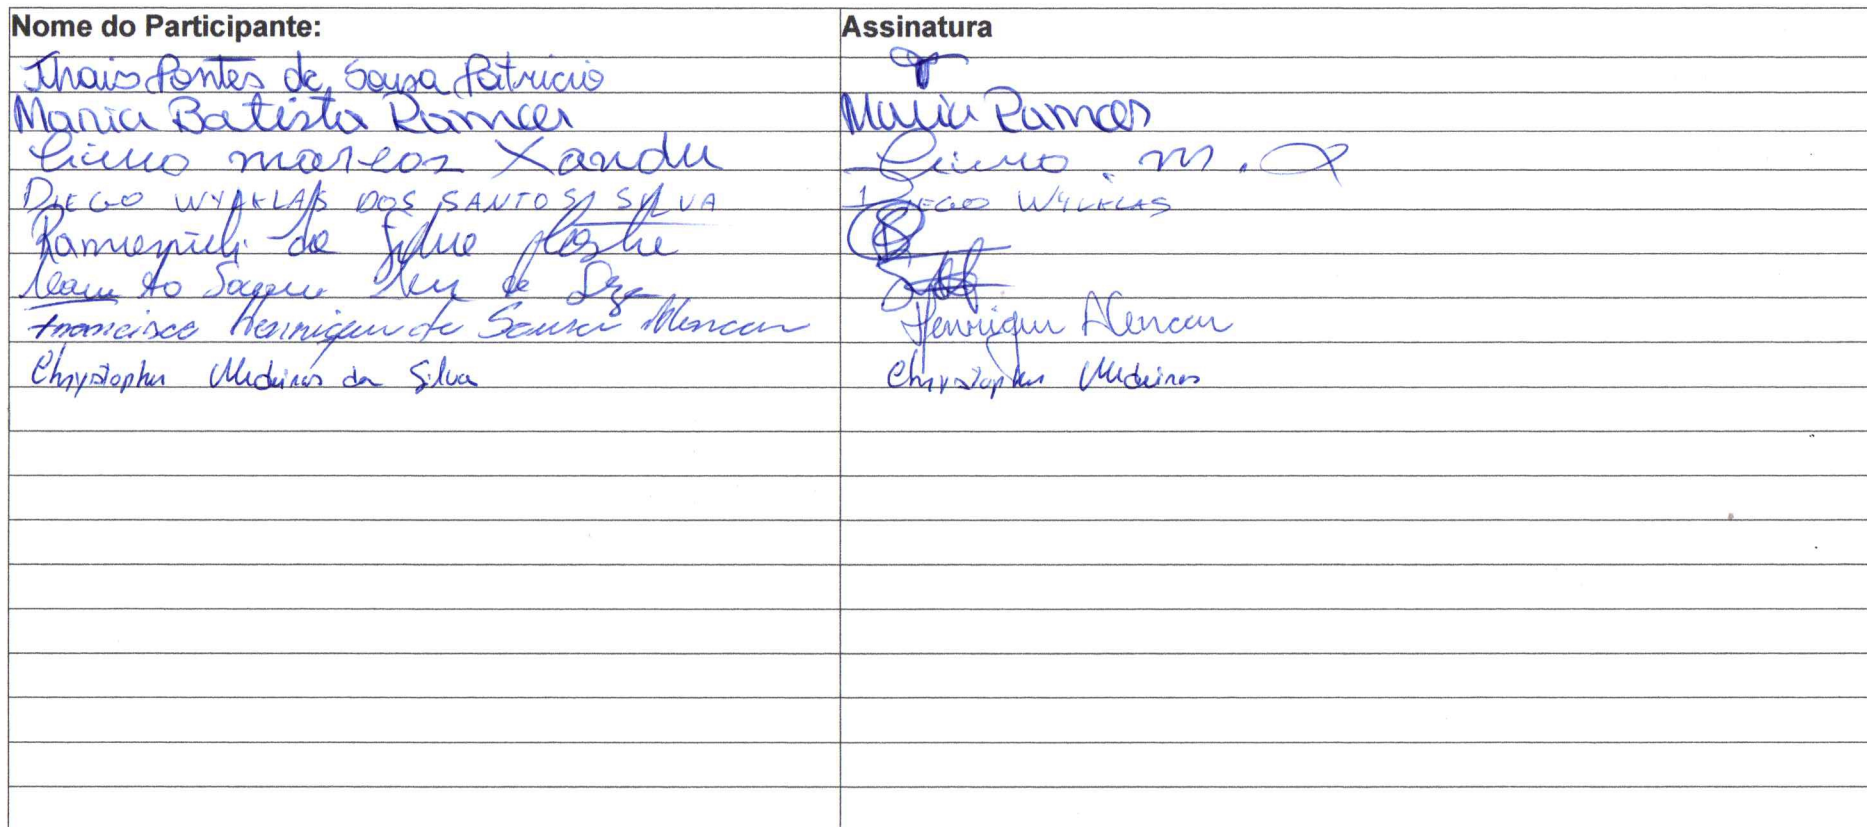 Nome do Participante: Assinatura
Thais Pontes de Sousa Patricio
Maria Batista Ramos Maria Ramos
Cicero marcos Xandu Cicero m.
DIEGO WYAKLAS DOS SANTOS SILVA DIEGO WYCKLAS
da Silva
Francisco Henrique de Sousa Alencar Henrique Alencar
Chrystopher Medeiros da Silva Chrystopher Medeiros